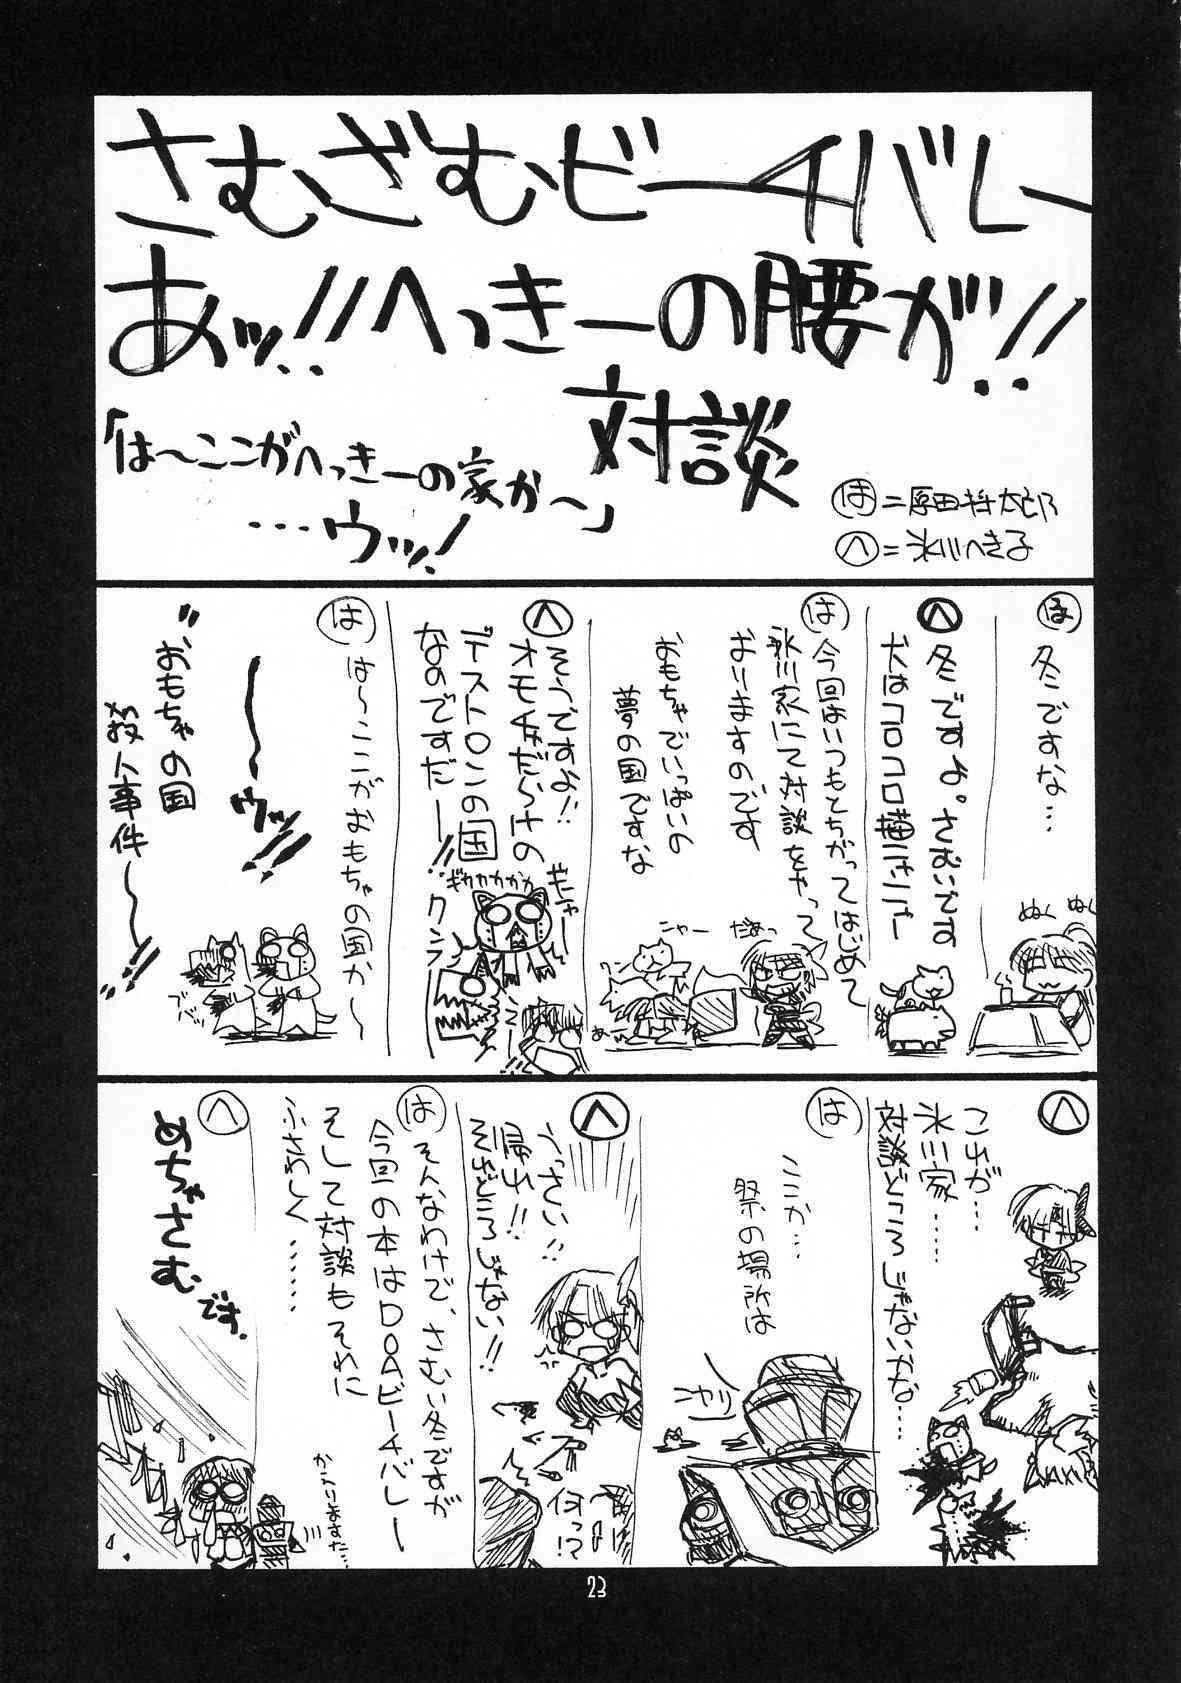 さむざむビーチバレー
あッ!!へっきーの腰が!!
対談
「は〜ここがへっきーの家か〜」
…ウッ!
は=原田将太郎
へ=氷川へきる
は
冬ですな…
ぬくぬく
へ
冬ですよ。さむいです
犬はコロコロ猫ニャンニャー
は
今回はいつもとちがってはじめて
氷川家にて対談をやって
おりますのです
おもちゃでいっぱいの
夢の国ですな
ニャー
だぁっ
ワン
へ
そうですよ!!
オモチャだらけの
デストロンの国
なのですだー!!
ギャー
ギカカカカカ
は
は〜ここがおもちゃの国か〜
〜ウッ!!
"おもちゃの国
殺人事件〜"!!
へ
これが…
氷川家……
対談どころじゃないな…
は
ここか…
祭の場所は
へ
うっさい!!
帰れ!!
それどころじゃない!!
何っ!?
は
そんなわけで、さむい冬ですが
今回の本はDOAビーチバレー
そして対談もそれに
ふさわしく……
かえりますた…
へ
めちゃさむです。
23